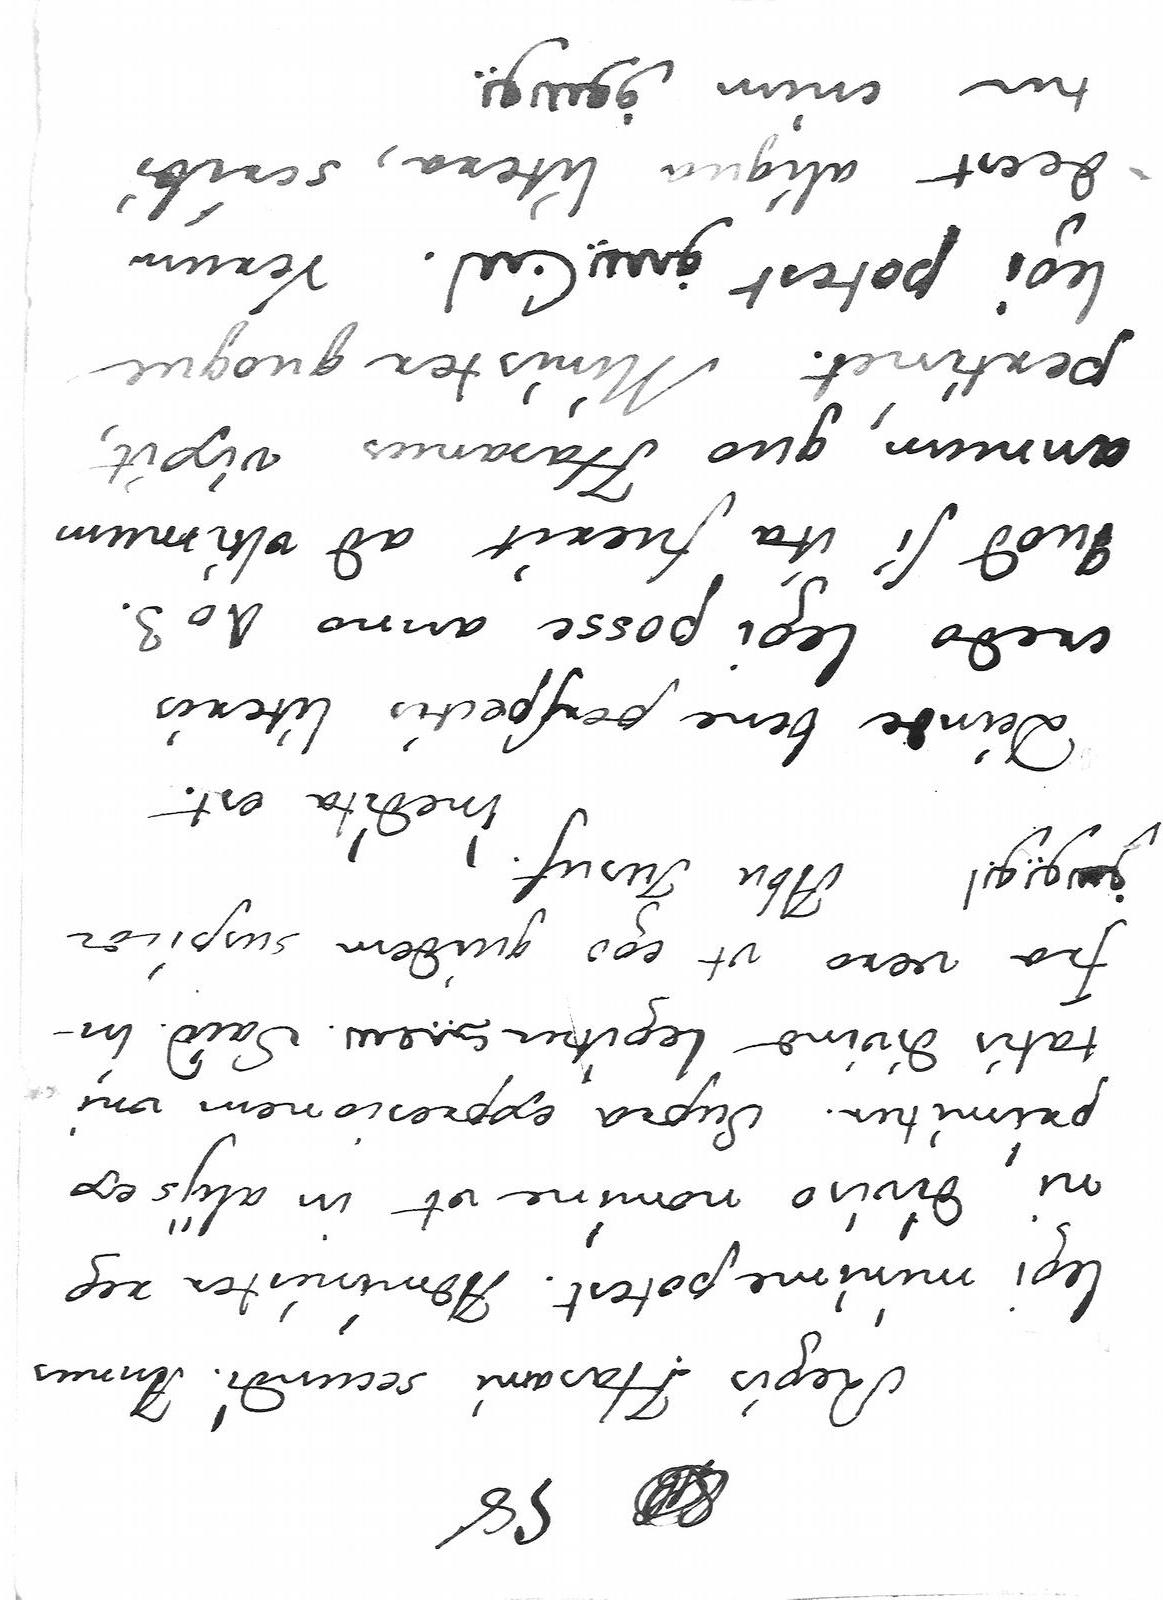 58
Regis Hasani secundi. Annus
legi minime potest. Administer reg
ni, diviso nomine vt in alijs ex
primitur. Supra expresionem vni
tatis divine legitur Said. In-
fra vero vt ego quidem suspicor
Abu Jusuf.
inedita est.
Deinde bene perspectis literis
credo legi posse anno
Quod si ita fuerit ad vltimum
annum, quo Hasanus vixit,
pertinet. Minister quoque
legi potest . Verum
deest aliqua litera, scribi
tur enim